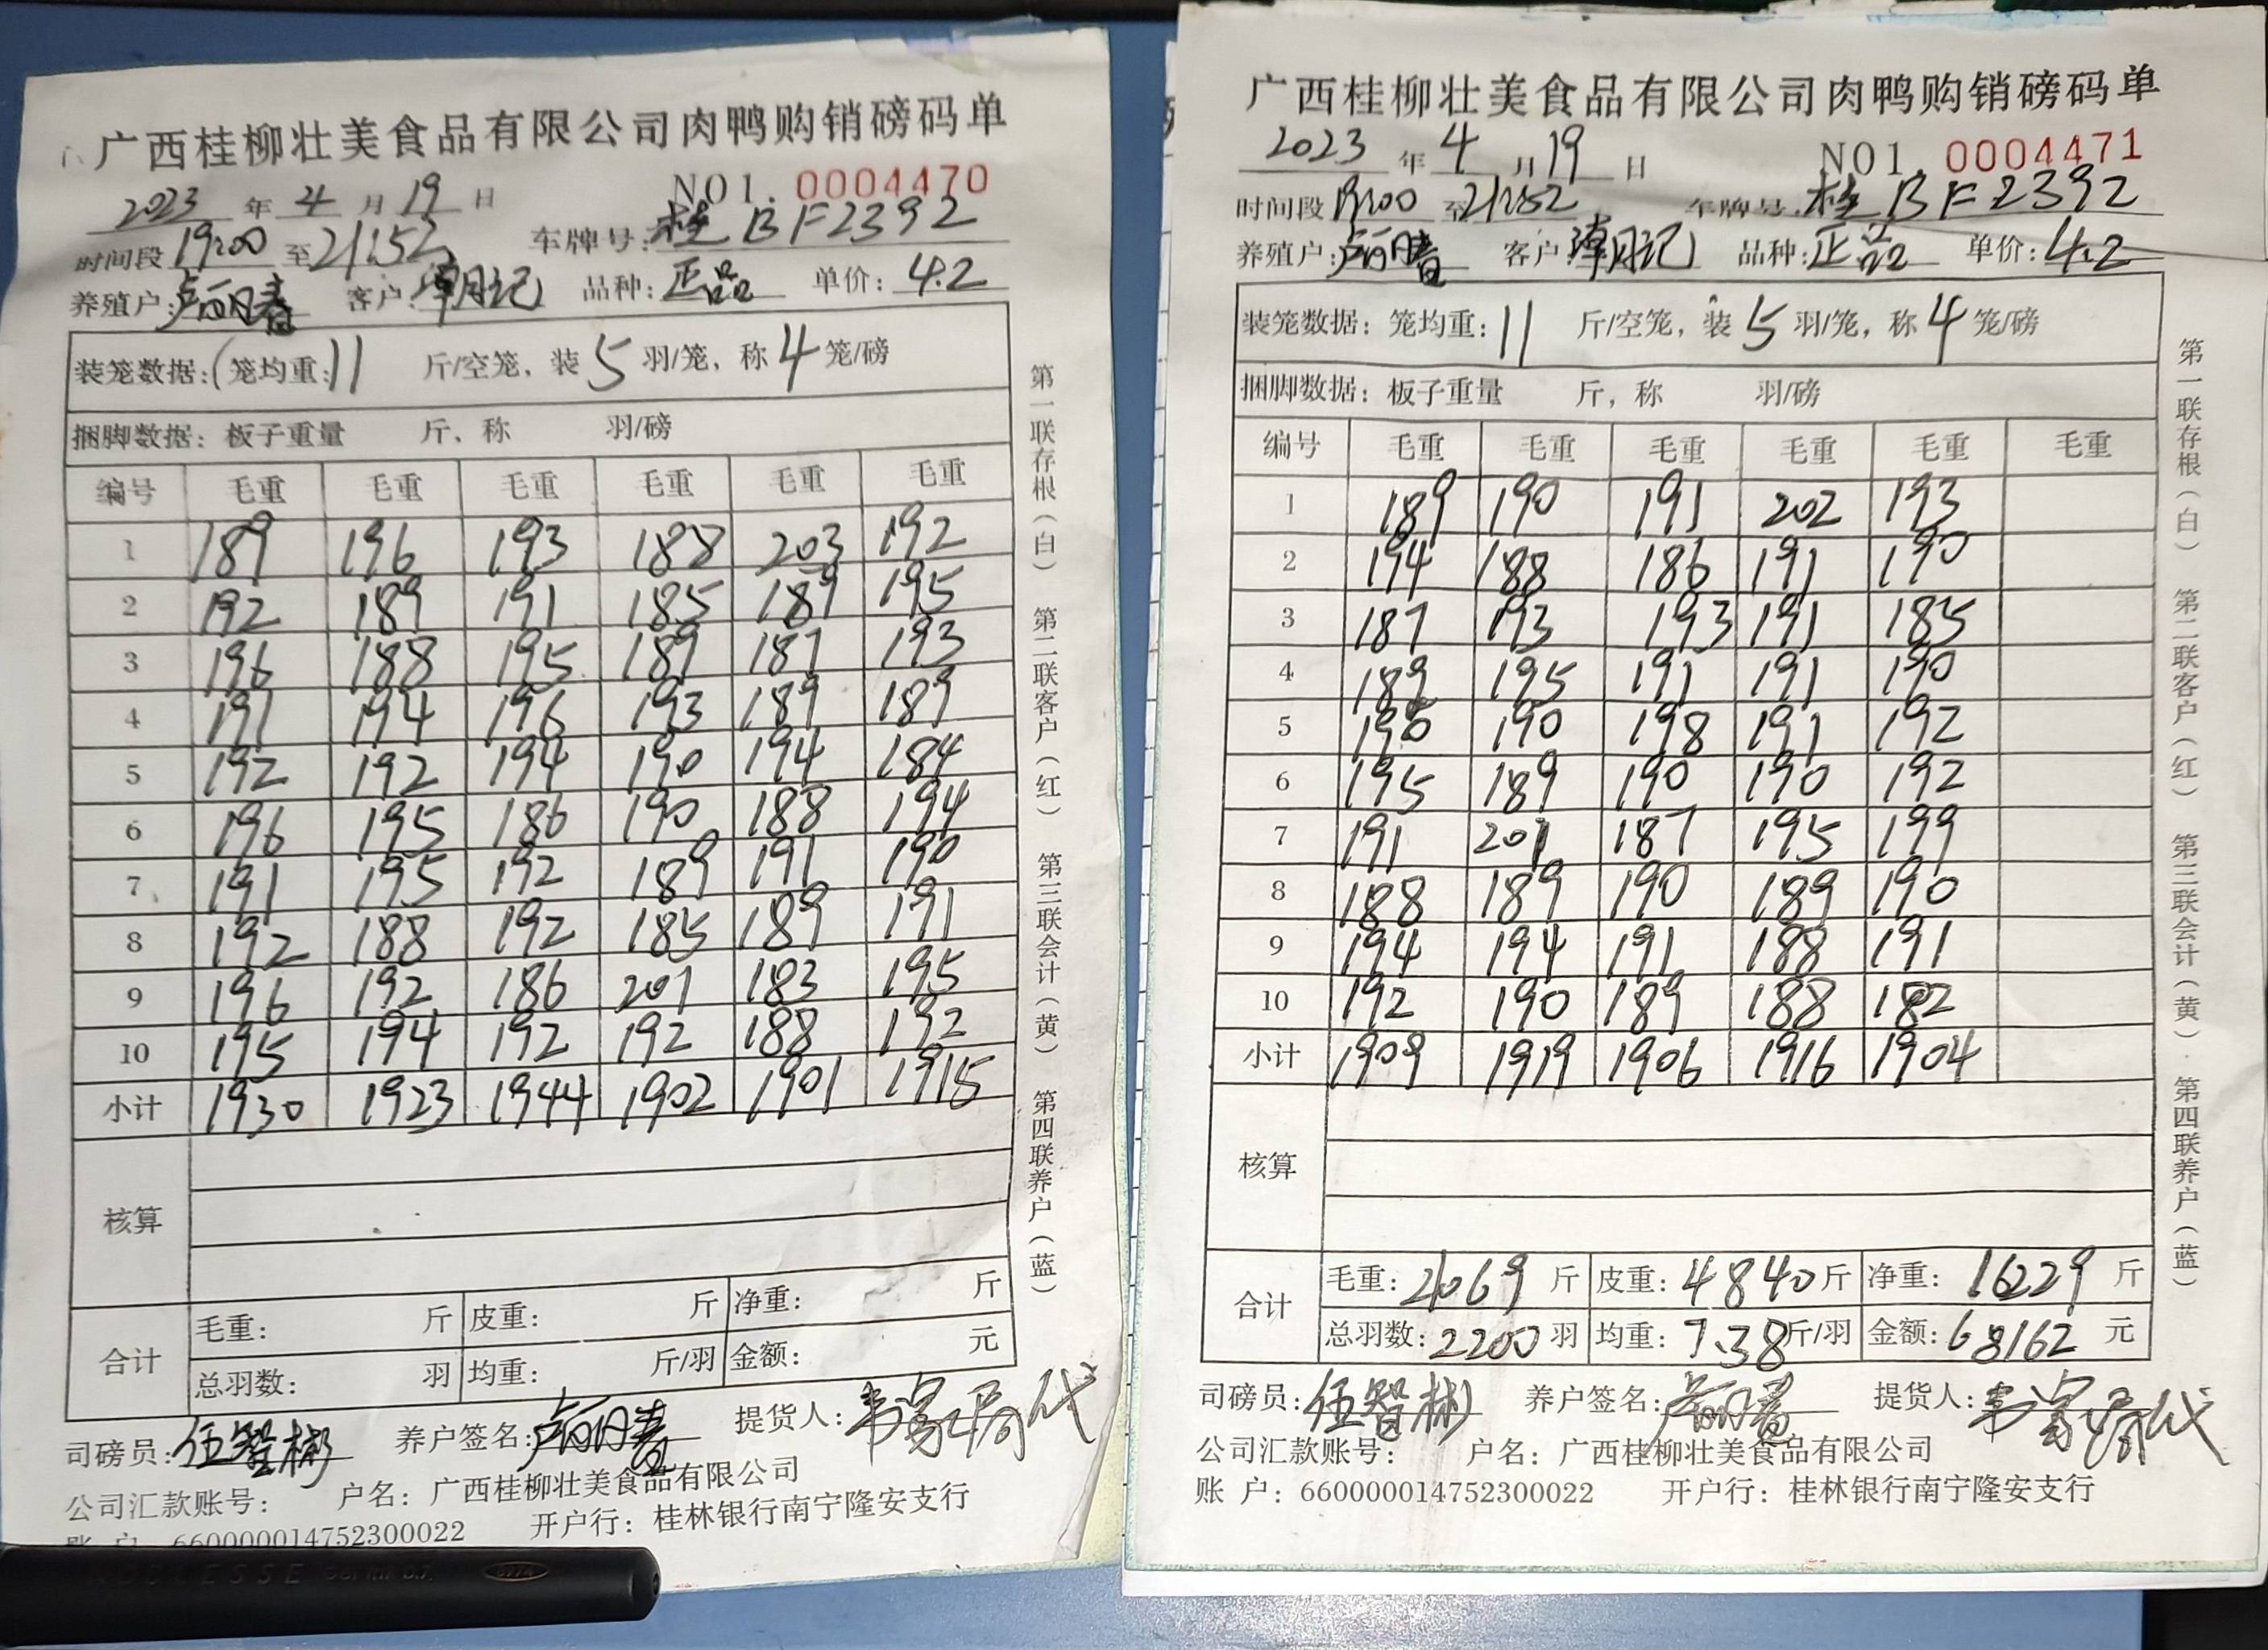 广西桂柳壮美食品有限公司肉鸭购销磅码单
2023 年 4 月 19 日 NO1. 0004470
时间段 19:00 至 21:52 车牌号: 桂BF2392
养殖户: 客户: 品种: 正品 单价: 4.2
装笼数据:(笼均重: 11 斤/空笼, 装 5 羽/笼, 称 4 笼/磅
捆脚数据: 板子重量 斤, 称 羽/磅
编号 毛重 毛重 毛重 毛重 毛重 毛重
1 189 196 193 188 203 192
2 192 189 191 185 189 195
3 196 188 195 189 187 193
4 191 194 196 193 189 189
5 192 192 194 190 194 184
6 196 195 186 190 188 194
7 191 195 192 189 191 190
8 192 188 192 185 189 191
9 196 192 186 201 183 195
10 195 194 192 192 188 192
小计 1930 1923 1944 1902 1901 1915
核算
合计 毛重: 斤 皮重: 斤 净重: 斤
总羽数: 羽 均重: 斤/羽 金额: 元
司磅员: 伍智彬 养户签名: 提货人:
公司汇款账号: 户名: 广西桂柳壮美食品有限公司
账 户: 660000014752300022 开户行: 桂林银行南宁隆安支行
第一联存根(白) 第二联客户(红) 第三联会计(黄) 第四联养户(蓝)
广西桂柳壮美食品有限公司肉鸭购销磅码单
2023 年 4 月 19 日 NO1. 0004471
时间段 19:00 至 21:52 车牌号: 桂BF2392
养殖户: 客户: 品种: 正品 单价: 4.2
装笼数据: 笼均重: 11 斤/空笼, 装 5 羽/笼, 称 4 笼/磅
捆脚数据: 板子重量 斤, 称 羽/磅
编号 毛重 毛重 毛重 毛重 毛重 毛重
1 189 190 191 202 193
2 194 188 186 191 190
3 187 193 193 191 185
4 189 195 191 191 190
5 190 190 198 191 192
6 195 189 190 190 192
7 191 201 187 195 199
8 188 189 190 189 190
9 194 194 191 188 191
10 192 190 189 188 182
小计 1909 1919 1906 1916 1904
核算
合计 毛重: 21069 斤 皮重: 4840 斤 净重: 16229 斤
总羽数: 2200 羽 均重: 7.38 斤/羽 金额: 68162 元
司磅员: 伍智彬 养户签名: 提货人:
公司汇款账号: 户名: 广西桂柳壮美食品有限公司
账 户: 660000014752300022 开户行: 桂林银行南宁隆安支行
第一联存根(白) 第二联客户(红) 第三联会计(黄) 第四联养户(蓝)